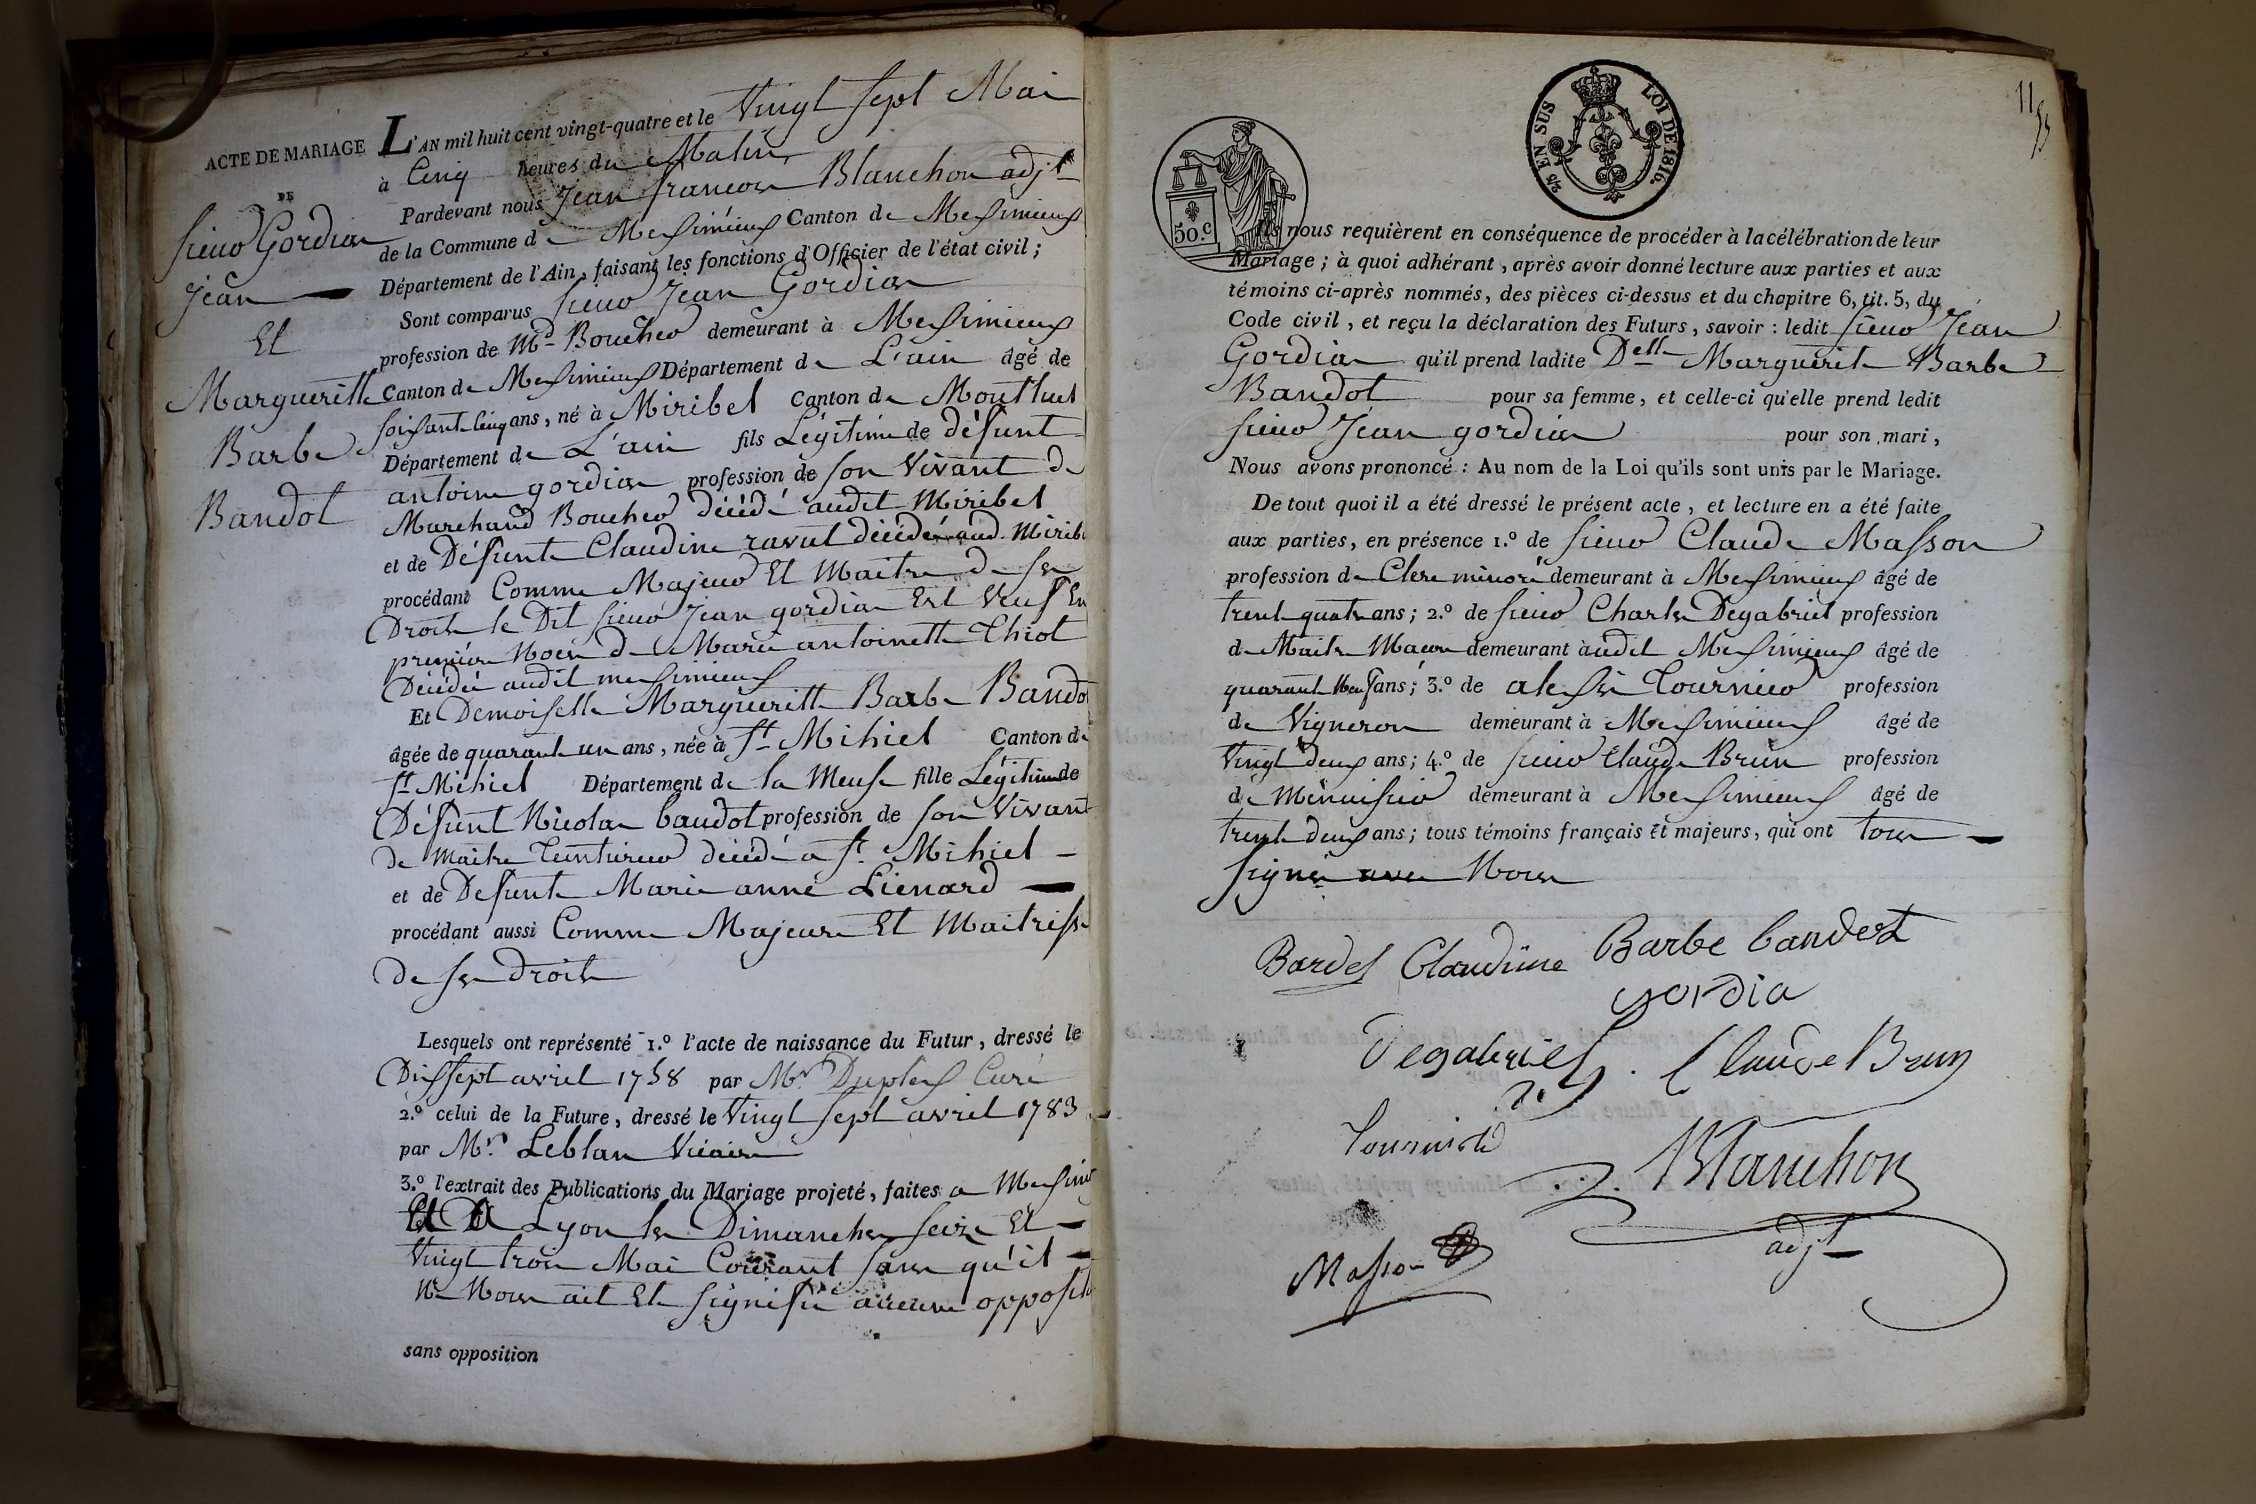 ACTE DE MARIAGE
DE
sieur Gordian
Jean
Et
Margueritte
Barbe
Baudot
L'AN mil huit cent vingt-quatre et le Vingt sept Mai
à Cinq heures du Matin
Pardevant nous Jean françois Blanchon adjt
de la Commune de Messimieux Canton de Messimieux
Département de l'Ain, faisant les fonctions d'Officier de l'état civil;
Sont comparus sieur Jean Gordian
profession de Md Boucher demeurant à Messimieux
Canton de Messimieux Département de L'ain âgé de
soissante cinq ans, né à Miribel Canton de Montluel
Département de L'ain fils Légitime de défunt
antoine gordian profession de son Vivant de
Marchand Boucher décédé audit Miribel
et de Défunte Claudine ravat décédée aud. Miribel
procédant Comme Majeur Et Maitre de ses
Droits le Dit sieur Jean gordian Est Veuf En
premières Noces de Marie antoinette Thiot
Décédée audit messimieux
Et Demoiselle Margueritte Barbe Baudot
âgée de quarante un ans, née à St Mihiel Canton de
St Mihiel Département de la Meuse fille Légitime de
Défunt Nicolas baudot profession de son Vivant
de Maitre Teinturier décédé a St Mihiel
et de Defunte Marie anne Lienard
procédant aussi Comme Majeure Et Maitresse
de ses droits
Lesquels ont représenté 1.º l'acte de naissance du Futur, dressé le
Dissept avril 1758 par Mr Duplex Curé
2.º celui de la Future, dressé le Vingt sept avril 1783
par Mr. Leblan Vicaire
3.º l'extrait des Publications du Mariage projeté, faites a Messimieux
Et A Lyon les Dimanches seize Et
Vingt trois Mai Courant sans qu'il
Ne Nous ait Eté signifié aucune opposition
sans opposition
11
55
50.c
2/5 EN SUS LOI DE 1816.
Ils nous requièrent en conséquence de procéder à la célébration de leur
Mariage; à quoi adhérant, après avoir donné lecture aux parties et aux
témoins ci-après nommés, des pièces ci-dessus et du chapitre 6, tit. 5, du
Code civil, et reçu la déclaration des Futurs, savoir: ledit sieur Jean
Gordian qu'il prend ladite Delle Marguerite Barbe
Baudot pour sa femme, et celle-ci qu'elle prend ledit
sieur Jean gordian pour son mari,
Nous avons prononcé: Au nom de la Loi qu'ils sont unis par le Mariage.
De tout quoi il a été dressé le présent acte, et lecture en a été faite
aux parties, en présence 1.º de sieur Claude Masson
profession de Clerc minoré demeurant à Messimieux âgé de
trente quatre ans; 2.º de sieur Charles Degabriel profession
de Maitre Macon demeurant à audit Messimieux âgé de
quarante Neuf ans; 3.º de alexis Tournier profession
de Vigneron demeurant à Messimieux âgé de
Vingt deux ans; 4.º de sieur Claude Brun profession
de Menuisier demeurant à Messimieux âgé de
trente deux ans; tous témoins français Et majeurs, qui ont tous
signés avec Nous
Bardel Claudine Barbe baudot
gordia
Degabriel Claude Brun
Tournier
Blanchon
adjt
Masson